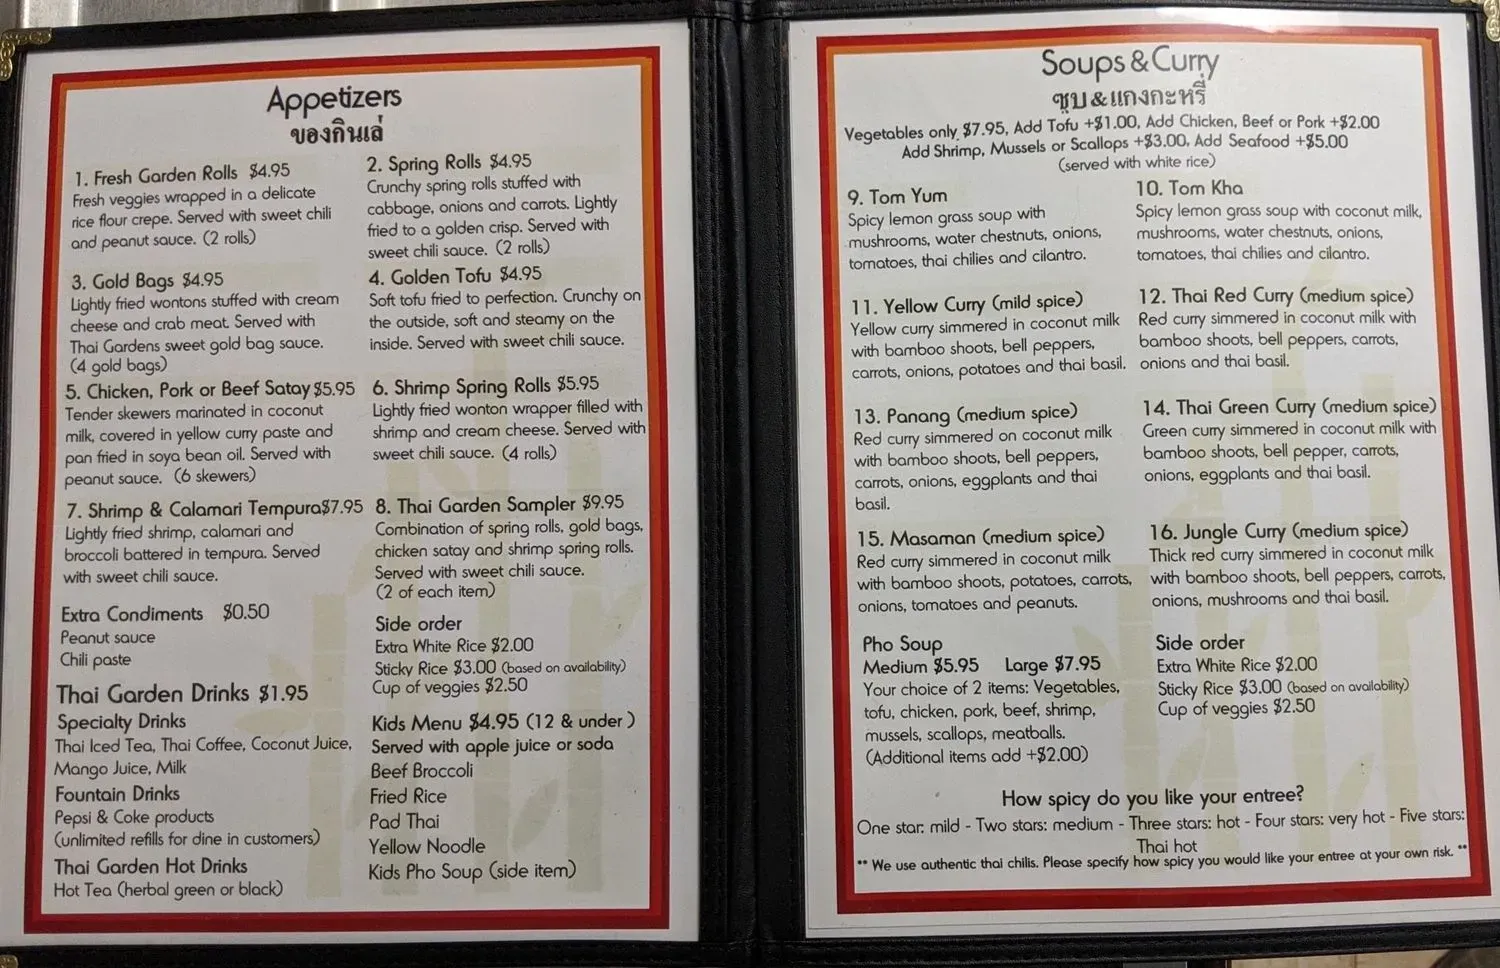 Appetizers
ของกินเล่
1. Fresh Garden Rolls $4.95
Fresh veggies wrapped in a delicate
rice flour crepe. Served with sweet chili
and peanut sauce. (2 rolls)
2. Spring Rolls $4.95
Crunchy spring rolls stuffed with
cabbage, onions and carrots. Lightly
fried to a golden crisp. Served with
sweet chili sauce. (2 rolls)
3. Gold Bags $4.95
Lightly fried wontons stuffed with cream
cheese and crab meat. Served with
Thai Gardens sweet gold bag sauce.
(4 gold bags)
4. Golden Tofu $4.95
Soft tofu fried to perfection. Crunchy on
the outside, soft and steamy on the
inside. Served with sweet chili sauce.
5. Chicken, Pork or Beef Satay $5.95
Tender skewers marinated in coconut
milk, covered in yellow curry paste and
pan fried in soya bean oil. Served with
peanut sauce. (6 skewers)
6. Shrimp Spring Rolls $5.95
Lightly fried wonton wrapper filled with
shrimp and cream cheese. Served with
sweet chili sauce. (4 rolls)
7. Shrimp & Calamari Tempura$7.95
Lightly fried shrimp, calamari and
broccoli battered in tempura. Served
with sweet chili sauce.
8. Thai Garden Sampler $9.95
Combination of spring rolls, gold bags,
chicken satay and shrimp spring rolls.
Served with sweet chili sauce.
(2 of each item)
Extra Condiments $0.50
Peanut sauce
Chili paste
Side order
Extra White Rice $2.00
Sticky Rice $3.00 (based on availability)
Cup of veggies $2.50
Thai Garden Drinks $1.95
Specialty Drinks
Thai Iced Tea, Thai Coffee, Coconut Juice,
Mango Juice, Milk
Fountain Drinks
Pepsi & Coke products
(unlimited refills for dine in customers)
Thai Garden Hot Drinks
Hot Tea (herbal green or black)
Kids Menu $4.95 (12 & under )
Served with apple juice or soda
Beef Broccoli
Fried Rice
Pad Thai
Yellow Noodle
Kids Pho Soup (side item)
Soups & Curry
ซุบ & แกงกะหรี่
Vegetables only $7.95, Add Tofu +$1.00, Add Chicken, Beef or Pork +$2.00
Add Shrimp, Mussels or Scallops +$3.00, Add Seafood +$5.00
(served with white rice)
9. Tom Yum
Spicy lemon grass soup with
mushrooms, water chestnuts, onions,
tomatoes, thai chilies and cilantro.
10. Tom Kha
Spicy lemon grass soup with coconut milk,
mushrooms, water chestnuts, onions,
tomatoes, thai chilies and cilantro.
11. Yellow Curry (mild spice)
Yellow curry simmered in coconut milk
with bamboo shoots, bell peppers,
carrots, onions, potatoes and thai basil.
12. Thai Red Curry (medium spice)
Red curry simmered in coconut milk with
bamboo shoots, bell peppers, carrots,
onions and thai basil.
13. Panang (medium spice)
Red curry simmered on coconut milk
with bamboo shoots, bell peppers,
carrots, onions, eggplants and thai
basil.
14. Thai Green Curry (medium spice)
Green curry simmered in coconut milk with
bamboo shoots, bell pepper, carrots,
onions, eggplants and thai basil.
15. Masaman (medium spice)
Red curry simmered in coconut milk
with bamboo shoots, potatoes, carrots,
onions, tomatoes and peanuts.
16. Jungle Curry (medium spice)
Thick red curry simmered in coconut milk
with bamboo shoots, bell peppers, carrots,
onions, mushrooms and thai basil.
Pho Soup
Medium $5.95 Large $7.95
Your choice of 2 items: Vegetables,
tofu, chicken, pork, beef, shrimp,
mussels, scallops, meatballs.
(Additional items add +$2.00)
Side order
Extra White Rice $2.00
Sticky Rice $3.00 (based on availability)
Cup of veggies $2.50
How spicy do you like your entree?
One star: mild - Two stars: medium - Three stars: hot - Four stars: very hot - Five stars:
Thai hot
** We use authentic thai chilis. Please specify how spicy you would like your entree at your own risk. **